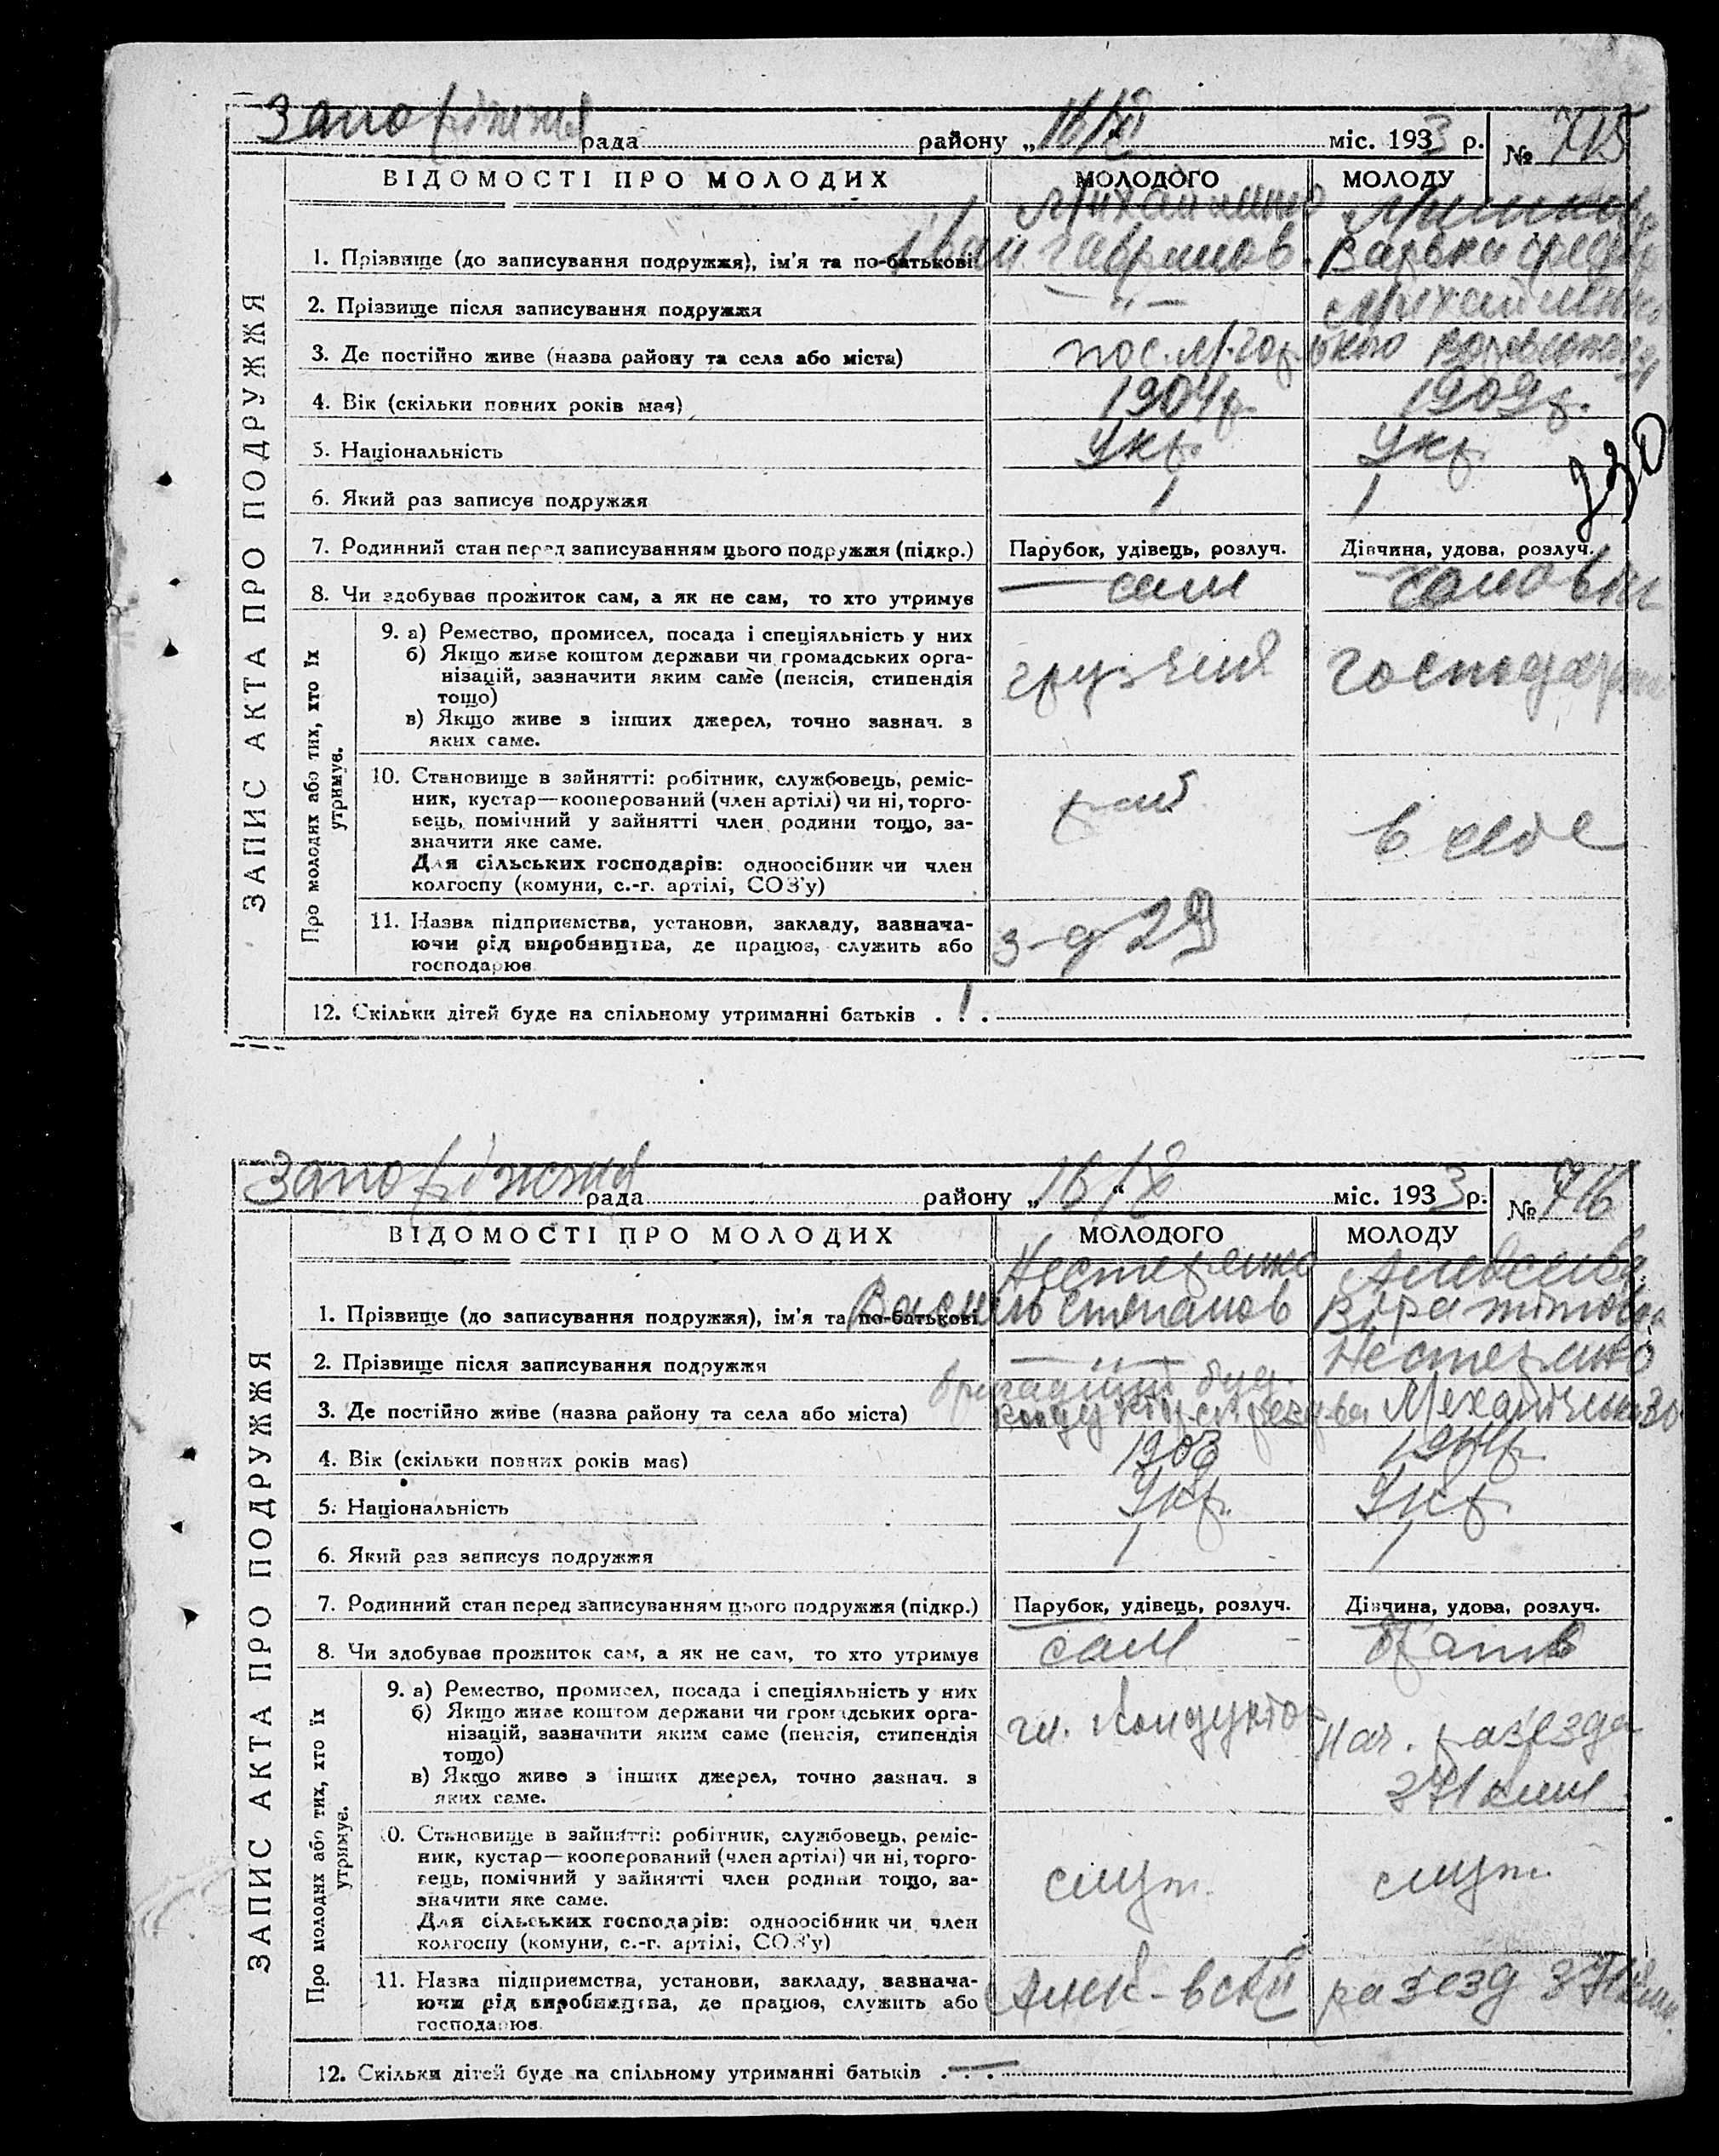 Запоріжжя рада районў „16/X“ міс. 1933 р. № 715
ВІДОМОСТІ ПРО МОЛОДИХ МОЛОДОГО МОЛОДУ
ЗАПИС АКТА ПРО ПОДРУЖЖЯ
1. Прізвище (до записування подружжя), ім'я та по-батькові Михайленко Іван Гаврилов.
2. Прізвище після записування подружжя — „ — Михайленко
3. Де постійно живе (назва району та села або міста)
4. Вік (скільки повних років має) 1904р. 1909р.
5. Національність Укр. Укр.
6. Який раз записує подружжя 1 1
230
7. Родинний стан перед записуванням цього подружжя (підкр.) Парубок, удівець, розлуч. Дівчина, удова, розлуч.
8. Чи здобуває прожиток сам, а як не сам, то хто утримує сам
Про молодих або тих, хто їх утримує.
9. а) Ремество, промисел, посада і спеціяльність у них
б) Якщо живе коштом держави чи громадських орга-
нізацій, зазначити яким саме (пенсія, стипендія
тощо)
в) Якщо живе з інших джерел, точно зазнач. з
яких саме.
10. Становище в зайнятті: робітник, службовець, реміс-
ник, кустар—кооперований (член артілі) чи ні, торго-
вець, помічний у зайнятті член родини тощо, за-
значити яке саме.
Для сільських господарів: одноосібник чи член
колгоспу (комуни, с.-г. артілі, СОЗ'у)
11. Назва підприємства, установи, закладу, зазнача- з-д 29
ючи рід виробництва, де працює, служить або
господарює
12. Скільки дітей буде на спільному утриманні батьків . 1 .
Запоріжжя рада району „16/X“ міс. 1933 р. № 716
ВІДОМОСТІ ПРО МОЛОДИХ МОЛОДОГО МОЛОДУ
ЗАПИС АКТА ПРО ПОДРУЖЖЯ
1. Прізвище (до записування подружжя), ім'я та по-батькові Нестеренко Василь Степанов Віра Титовна
2. Прізвище після записування подружжя — „ — Нестеренко
3. Де постійно живе (назва району та села або міста)
4. Вік (скільки повних років має) 1908
5. Національність Укр. Укр.
6. Який раз записує подружжя 1 1
7. Родинний стан перед записуванням цього подружжя (підкр.) Парубок, удівець, розлуч. Дівчина, удова, розлуч.
8. Чи здобуває прожиток сам, а як не сам, то хто утримує сам
Про молодих або тих, хто їх утримує.
9. а) Ремество, промисел, посада і спеціяльність у них гл. Кондукто нач. разезда
б) Якщо живе коштом держави чи громадських орга-
нізацій, зазначити яким саме (пенсія, стипендія
тощо)
в) Якщо живе з інших джерел, точно зазнач. з
яких саме.
10. Становище в зайнятті: робітник, службовець, реміс-
ник, кустар—кооперований (член артілі) чи ні, торго- служ. служ.
вець, помічний у зайнятті член родини тощо, за-
значити яке саме.
Для сільських господарів: одноосібник чи член
колгоспу (комуни, с.-г. артілі, СОЗ'у)
11. Назва підприємства, установи, закладу, зазнача- разезд
ючи рід виробництва, де працює, служить або
господарює
12. Скільки дітей буде на спільному утриманні батьків . — .